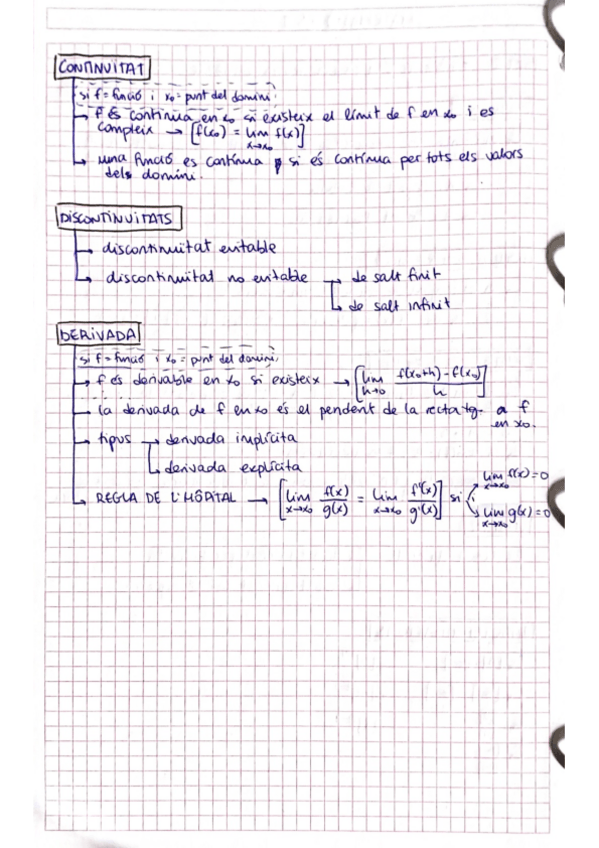 CONTINUITAT
si f = funció i x₀ = punt del domini:
→ f és contínua en x₀ si existeix el límit de f en x₀ i es
compleix → [f(x₀) = lim f(x)]
x→x₀
→ una funció es contínua si és contínua per tots els valors
dels domini.
DISCONTINUITATS
→ discontinuitat evitable
→ discontinuitat no evitable → de salt finit
→ de salt infinit
DERIVADA
si f = funció i x₀ = punt del domini:
→ f és derivable en x₀ si existeix → [lim h→0 (f(x₀+h) - f(x₀))/h]
→ la derivada de f en x₀ és el pendent de la recta tg. a f
en x₀.
→ tipus → derivada implícita
→ derivada explícita
→ REGLA DE L'HÔPITAL → [lim x→x₀ f(x)/g(x) = lim x→x₀ f'(x)/g'(x)] si lim x→x₀ f(x)=0
lim x→x₀ g(x)=0